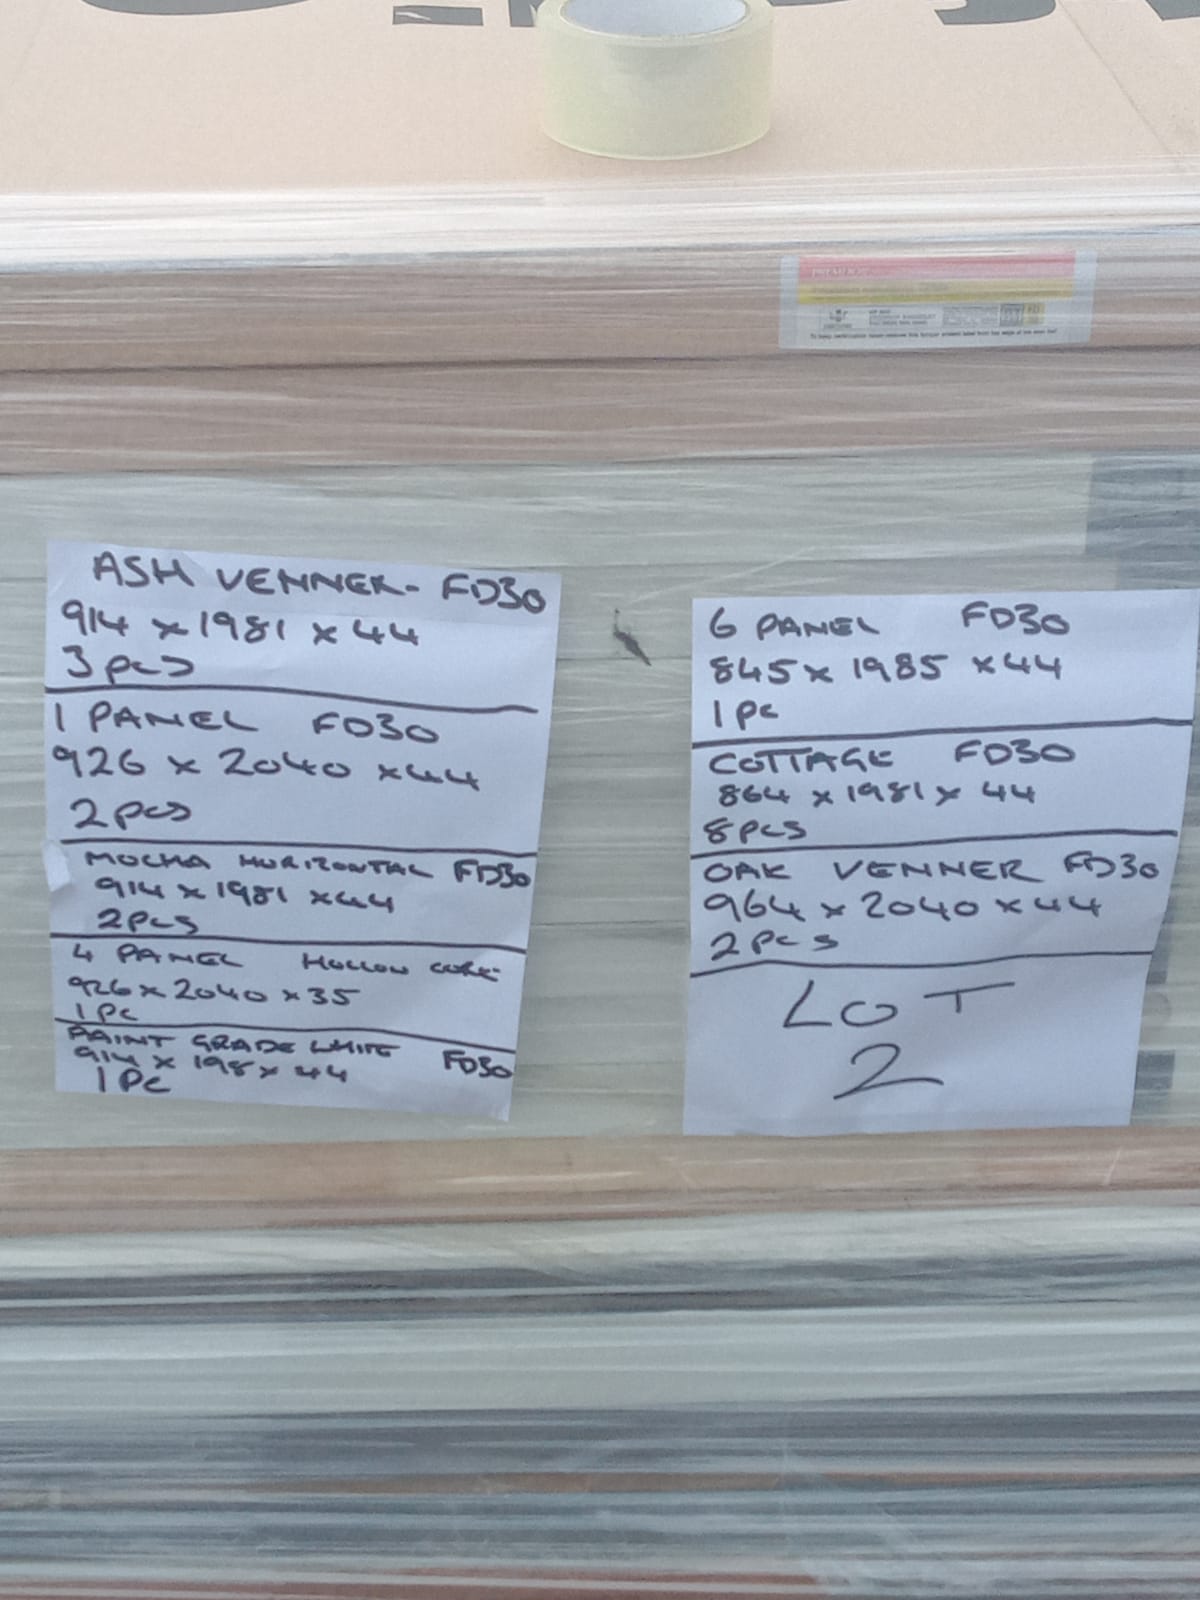 ASH VENNER- FD30
914 x 1981 x 44
3 pcs
1 PANEL FD30
926 x 2040 x 44
2 pcs
MOCHA HORIZONTAL FD30
914 x 1981 x 44
2 Pcs
4 PANEL HOLLOW CORE
926 x 2040 x 35
1 Pc
PAINT GRADE WHITE FD30
914 x 198 x 44
1 PC
6 PANEL FD30
845 x 1985 x 44
1 Pc
COTTAGE FD30
864 x 1981 x 44
8 Pcs
OAK VENNER FD30
964 x 2040 x 44
2 Pcs
LOT
2